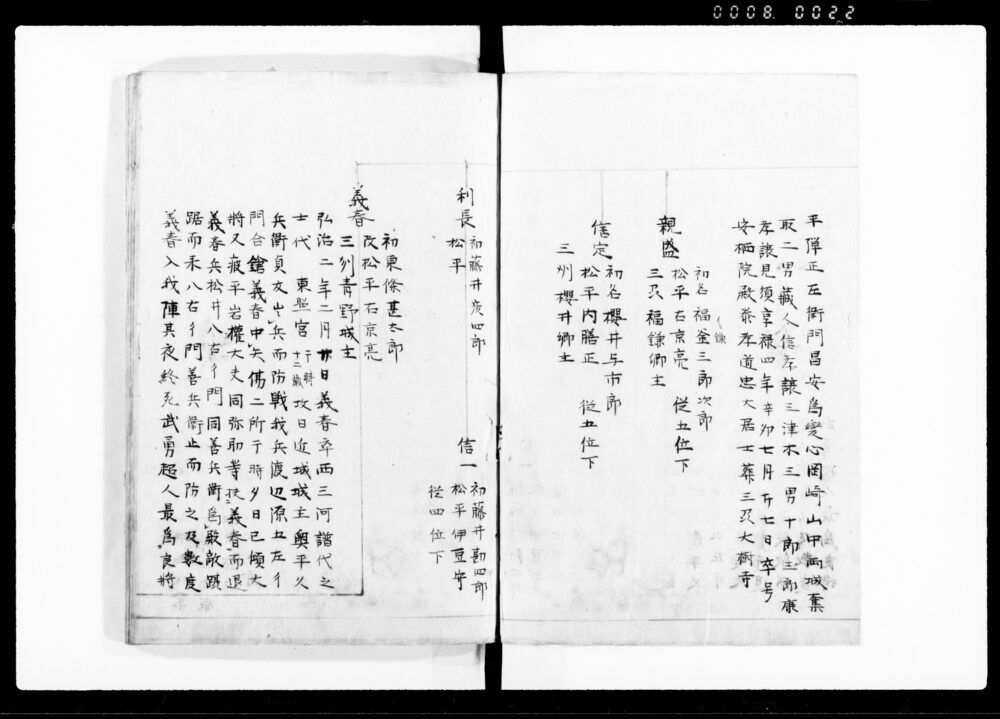 0008. 0022
平弾正左衛門昌安為變心岡﨑山中両城奪
取二男藏人信孝譲三津木三男十郎三郎康
孝譲見須享禄四年辛卯七月廾七日卒号
安栖院殿泰孝道忠大居士葬三刕大樹寺
親盛
初名福釜三郎次郎
鎌
松平右京亮 従五位下
三刕福鎌郷主
信定
初名櫻井与市郎
松平内膳正 従五位下
三州櫻井郷主
利長
初藤井彦四郎
松平
信一
初藤井勘四郎
松平伊豆守
従四位下
義春
初東條甚太郎
改松平右京亮
三州青野城主
弘治二年二月廾日義春卒西三河譜代之
士代 東照宮 于時十二歳 攻日近城城主奥平久
兵衛貞友出兵而防戦我兵渡辺源五左衛
門合鎗義春中矢傷二所于時夕日已傾大
将又疲平岩權大夫同弥助等扶義春而退
義春兵松井八右衛門同善兵衛為殿敵躡
踞而来八右衛門善兵衛止而防之及數度
義春入我陣其夜終死武勇超人最為良将